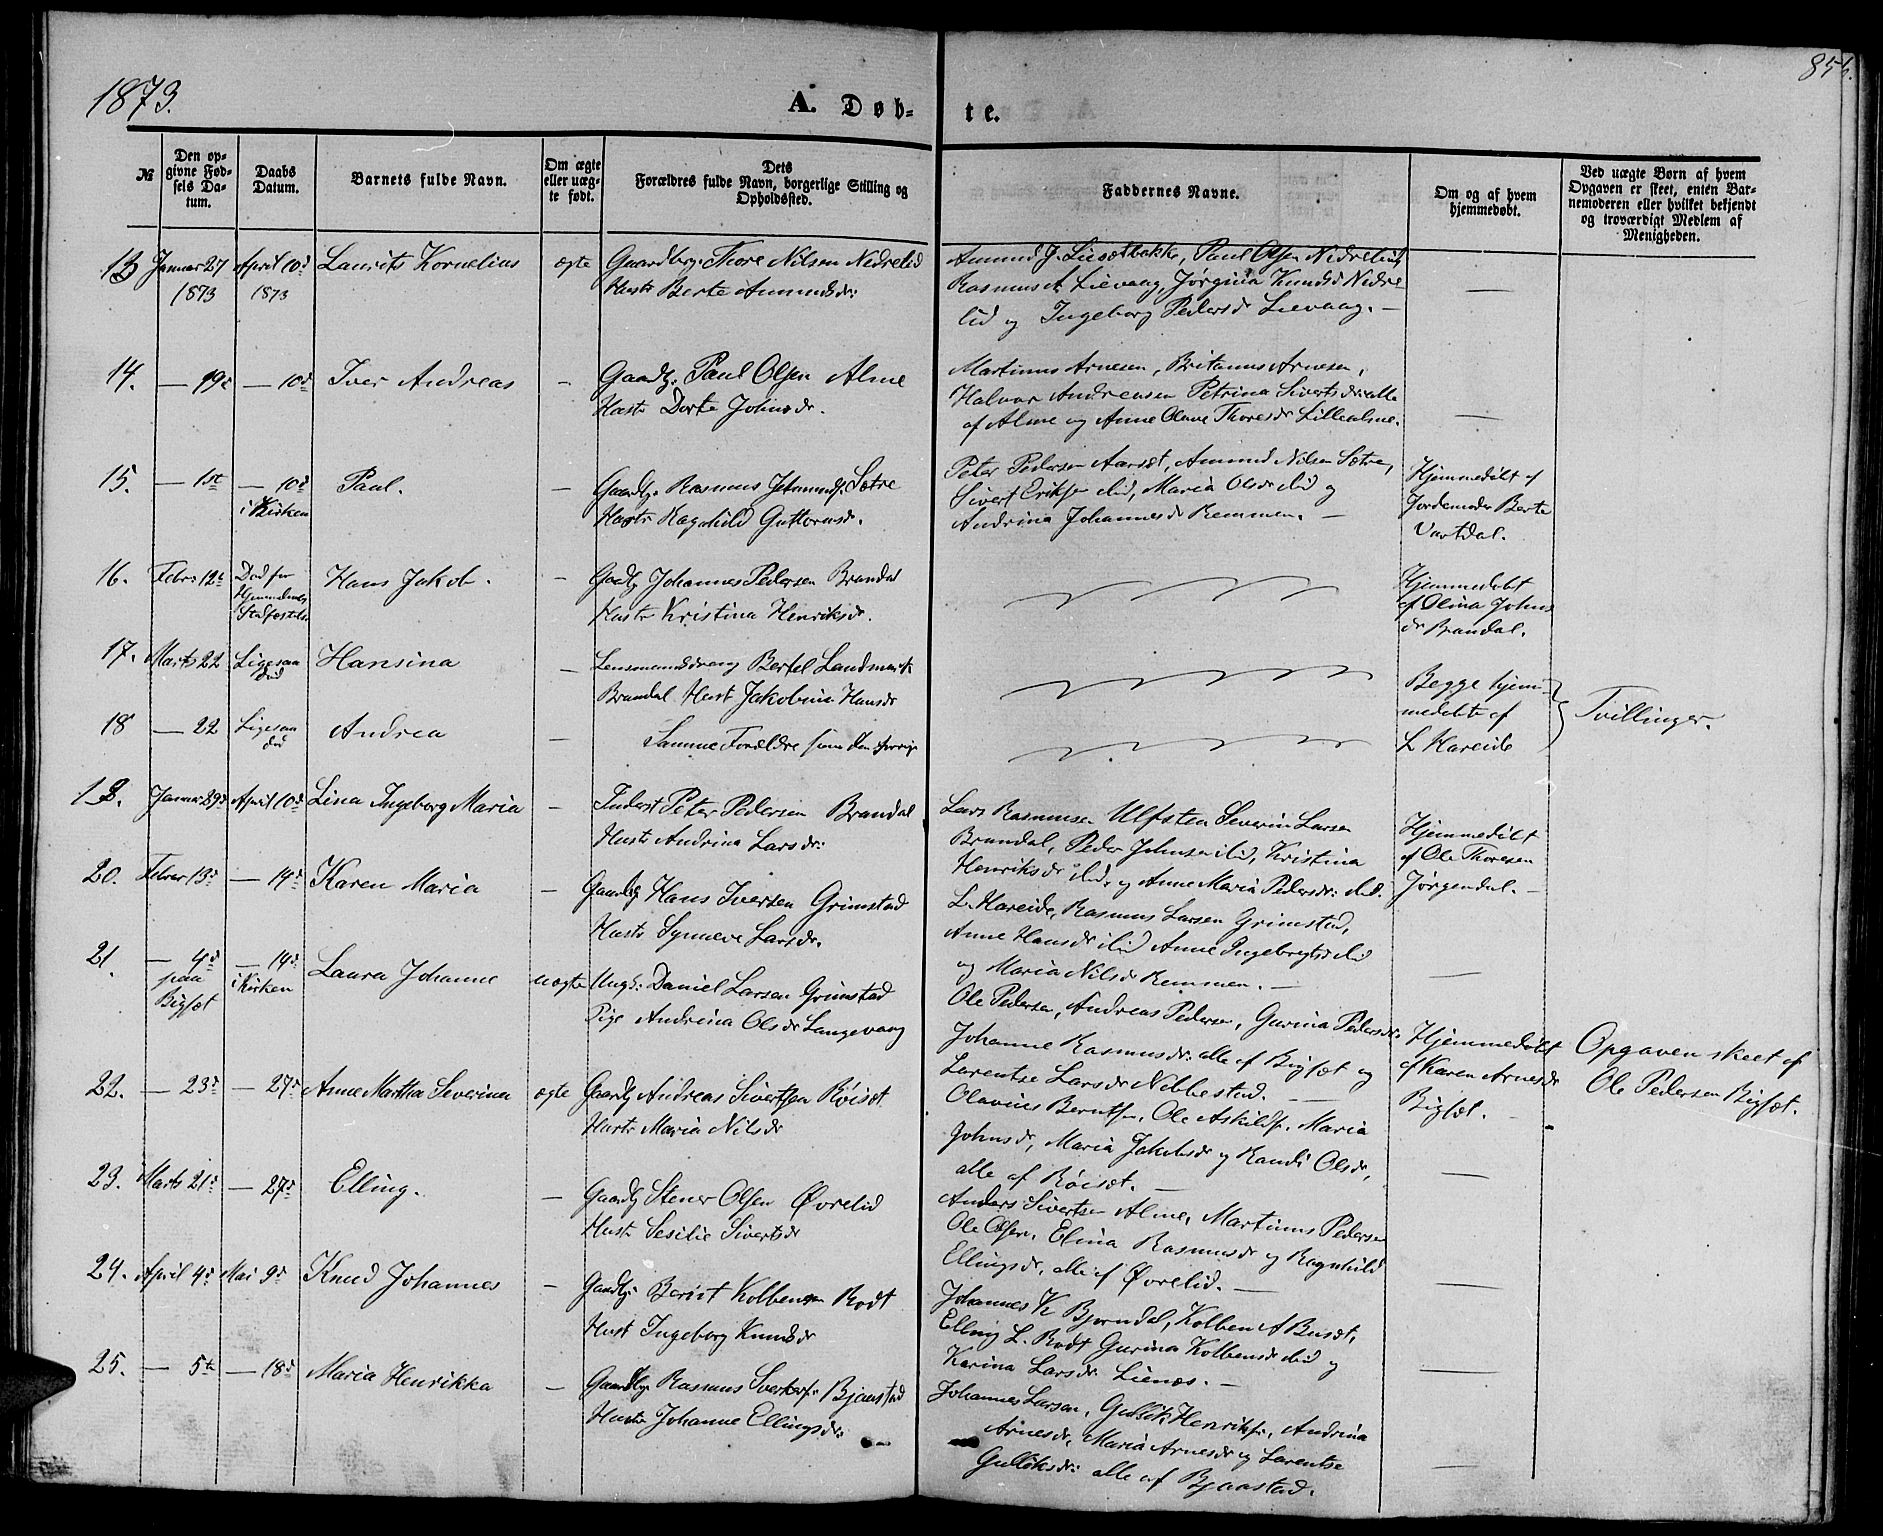 1873.
A. Døb-
te.
85b.
№
Den op-
givne Fød-
sels Da-
tum.
Daabs
Datum.
Barnets fulde Navn.
Om ægte
eller uæg-
te født.
Dets
Forældres fulde Navn, borgerlige Stilling og
Opholdssted.
Faddernes Navne.
Om og af hvem
hjemmedøbt.
Ved uægte Børn af hvem
Opgaven er skeet, enten Bar-
nemoderen eller hvilket bekjendt
og troværdigt Medlem af
Menigheden.
13 Januar 27 April 10d Laurits Kornelius ægte Gaardbr. Thore Nilsen Nedrelid
1873 1873 Hustr Berte Amundsdr:
Amund J. Lievætbakke, Paul Olsen Nedrelid,
Rasmus A. Lievaag, Jørgina Knudsd Nedre
lid og Ingeborg Pedersdr Lievaag. —
14. — 19e — 10d Iver Andreas — Gaardbr. Paul Olsen Alme
Hustr Dorte Johnsdr.
Martinus Arnesen, Britanus Arnesen,
Halvor Andreasen Petrina Sivertsdr: alle
af Alme og Anne Oluve Thoresdr Lillealme.
15. — 1ste — 10d Paul. — Gaardbr. Rasmus Johannesen Sætre
i Kirken Hustr Ragnhild Guttormsdr.
Peter Pedersen Aarset, Amund Nilsen Sætre,
Sivert Eriksen ibid, Maria Olsdr ibid og
Andrina Johannesdr Remmen. —
Hjemmedøbt af
Jordemoder Berte
Vartdal.
16. Febr. 12e Død før Hans Jakob. — Gaardbr Johannes Pedersen Brandal
Hjemmedaabs
Stadfæstelse Hustr Kristina Henriksdr.
Hjemmedøbt
af Olina Johns
dr Brandal.
17. Marts 22 Ligesaa Hansina — Lensmandsdreng Bertel Landmark
død Brandal Hust Jakobine Hansdr
18 — 22 Ligesaa Andrea — Samme Forældre som den forrige
død
Begge hjem-
medøbte af
L Hareide
Tvillinger.
19. Januar 29d April 10d Lina Ingeborg Maria — Inderst Peter Pedersen Brandal
Hustr Andrina Larsdr:
Lars Rasmusen Ulfsten Severin Larsen
Brandal, Peder Johnsen ibid, Kristina
Henriksdr ibid. og Anne Maria Pedersdr: ibid.
Hjemmedøbt
af Ole Thoresen
Jørgendal. —
20. Febrar 13d — 14d Karen Maria — Gaardbr Hans Iversen Grimstad
Hustr Synneve Larsdr.
L. Hareide, Rasmus Larsen Grimstad,
Anne Hansdr ibid Anne Ingebregtsd ibid
og Maria Nilsdr Remmen. —
21. — 4d — 14d Laura Johanne uægte Ungk: Daniel Larsen Grimstad
paa i Kirken
Bigset Pige Andrina Olsdr Langevaag
Ole Pedersen, Andreas Pedersen, Gurina Pedersdr.
Johanne Rasmusdr: alle af Bigset og
Larentse Larsdr Nibbestad. —
Hjemmedøbt
af Karen Arnesdr
Bigset. —
Opgaven skeet af
Ole Pedersen Bigset.
22. — 23d — 27d Anne Martha Severina ægte Gaardbr Andreas Sivertsen Røiset
Hustr Maria Nilsdr
Olavius Berntsen, Ole Askildsen, Maria
Johnsdr, Maria Jakobsdr og Randi Olsdr,
alle af Røiset. —
23. Marts 21d — 27d Elling. — Gaardbr Stener Olsen Øvrelid
Hustr Sesilie Sivertsdr
Anders Sivertsen Alme, Martinus Pedersen
Ole Olsen, Elina Rasmusdr og Ragnhild
Ellingsdr. alle af Øvrelid. —
24. April 4d Mai 9d Knud Johannes — Gaardbr. Berist Kolbensen Rødt
Hust Ingeborg Knudsdr
Johannes K Bjørndal, Kolben A Buset,
Elling L. Rødt Gurina Kolbensdr ibid og
Karina Larsdr Lienæs. —
25. — 5te — 18d Maria Henrikka — Gaardbr. Rasmus Sverkesen Bjaastad
Hustr Johanne Ellingsdr:
Johannes Larsen, Gullik Henriksen, Andrina
Arnesdr, Maria Arnesdr og Larentse
Gulliksdr: alle af Bjaastad.